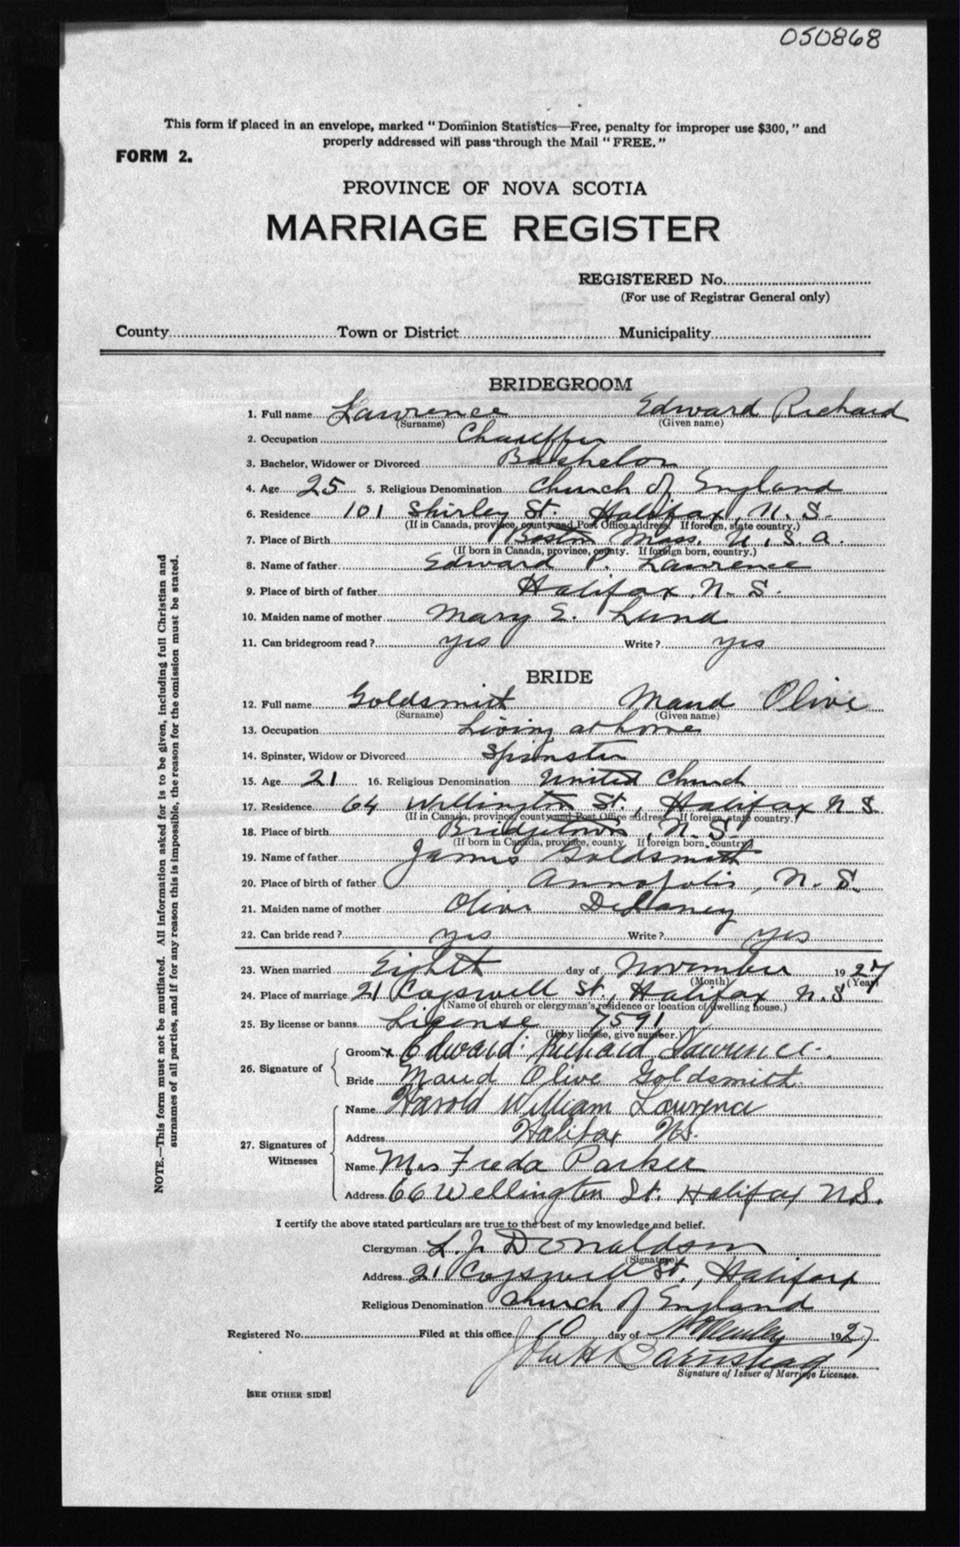 050868
This form if placed in an envelope, marked "Dominion Statistics—Free, penalty for improper use $300," and
properly addressed will pass through the Mail "FREE."
FORM 2.
PROVINCE OF NOVA SCOTIA
MARRIAGE REGISTER
REGISTERED No.
(For use of Registrar General only)
County Town or District Municipality
BRIDEGROOM
1. Full name Lawrence Edward Richard
(Surname) (Given name)
2. Occupation Chauffer
3. Bachelor, Widower or Divorced Bachelor
4. Age 25 5. Religious Denomination Church of England
6. Residence 101 Shirley St. Halifax, N. S.
(If in Canada, province, county and Post Office address. If foreign, state country.)
7. Place of Birth Boston Mass. U. S. A.
(If born in Canada, province, county. If foreign born, country.)
8. Name of father Edward P. Lawrence
9. Place of birth of father Halifax, N. S.
10. Maiden name of mother Mary E. Lund
11. Can bridegroom read? yes Write? yes
BRIDE
12. Full name Goldsmith Maud Olive
(Surname) (Given name)
13. Occupation Living at home
14. Spinster, Widow or Divorced Spinster
15. Age 21 16. Religious Denomination United Church
17. Residence 64 Wellington St., Halifax N S
(If in Canada, province, county and Post Office address. If foreign, state country.)
18. Place of birth Bridgetown, N. S.
(If born in Canada, province, county. If foreign born, country.)
19. Name of father James Goldsmith
20. Place of birth of father Annapolis, N. S.
21. Maiden name of mother Olive DeLaney
22. Can bride read? yes Write? yes
23. When married Eighth day of November 1927
(Month) (Year)
24. Place of marriage 21 Cogswell St., Halifax N. S
(Name of church or clergyman's residence or location of dwelling house.)
25. By license or banns License 7591
(If by license, give number.)
26. Signature of Groom x Edward Richard Lawrence.
Bride Maud Olive Goldsmith.
27. Signatures of Witnesses Name Harold William Lawrence
Address Halifax NS.
Name Mrs Freda Parker
Address 66 Wellington St. Halifax N.S.
I certify the above stated particulars are true to the best of my knowledge and belief.
Clergyman L. J. Donaldson
(Signature)
Address 21 Cogswell St., Halifax
Religious Denomination Church of England
Registered No. Filed at this office 10 day of November 1927
John H Barnstead
Signature of Issuer of Marriage Licenses.
[SEE OTHER SIDE]
NOTE.—This form must not be mutilated. All information asked for is to be given, including full Christian and
surnames of all parties, and if for any reason this is impossible, the reason for the omission must be stated.